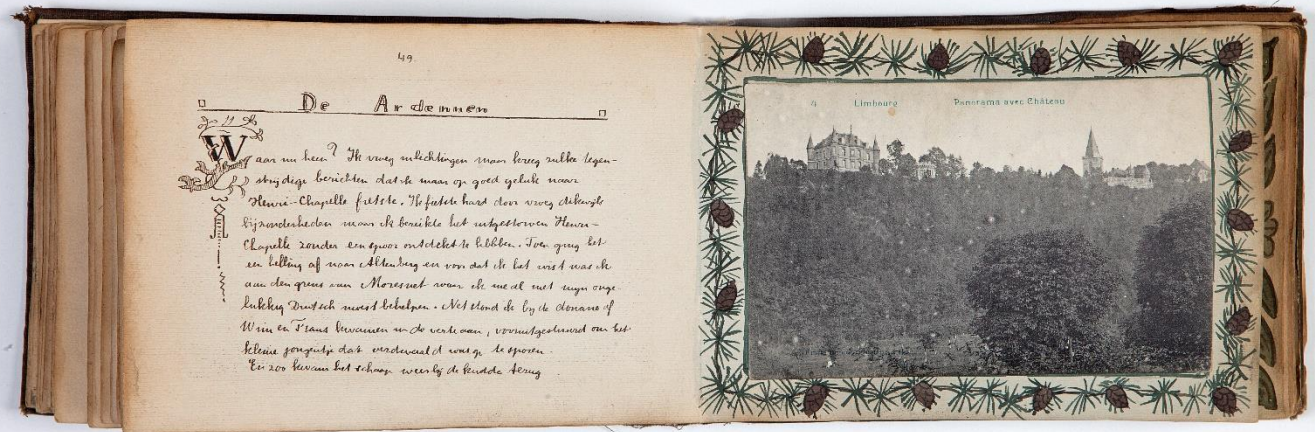 49.
De Ardennen
Waar nu heen? Ik vroeg inlichtingen maar kreeg zulke tegen-
strijdige berichten dat ik maar op goed geluk naar
Henri-Chapelle fietste. Ik fietste hard door vroeg dikwijls
bijzonderheden maar ik bereikte het uitgestorven Henri-
Chapelle zonder een spoor ontdekt te hebben. Toen ging het
een helling af naar Altenberg en voor dat ik het wist was ik
aan den grens van Moresnet waar ik me al met mijn onge-
lukkig Duitsch moest behelpen. Net stond ik bij de douane of
Wim en Frans kwamen in de verte aan, vooruitgestuurd om het
kleine jongentje dat verdwaald was op te sporen.
En zoo kwam het schaap weer bij de kudde terug
4 Limbourg Panorama avec Château